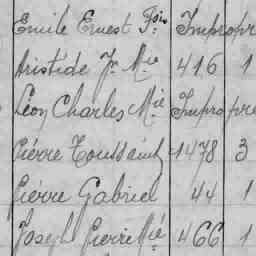 Emile Ernest Fois Impropre
Aristide Je Mie 416 1
Léon Charles Mie Impropre
Pierre Toussaint 1478 3
Pierre Gabriel 44 1
Joseph Pierre Mie 466 1